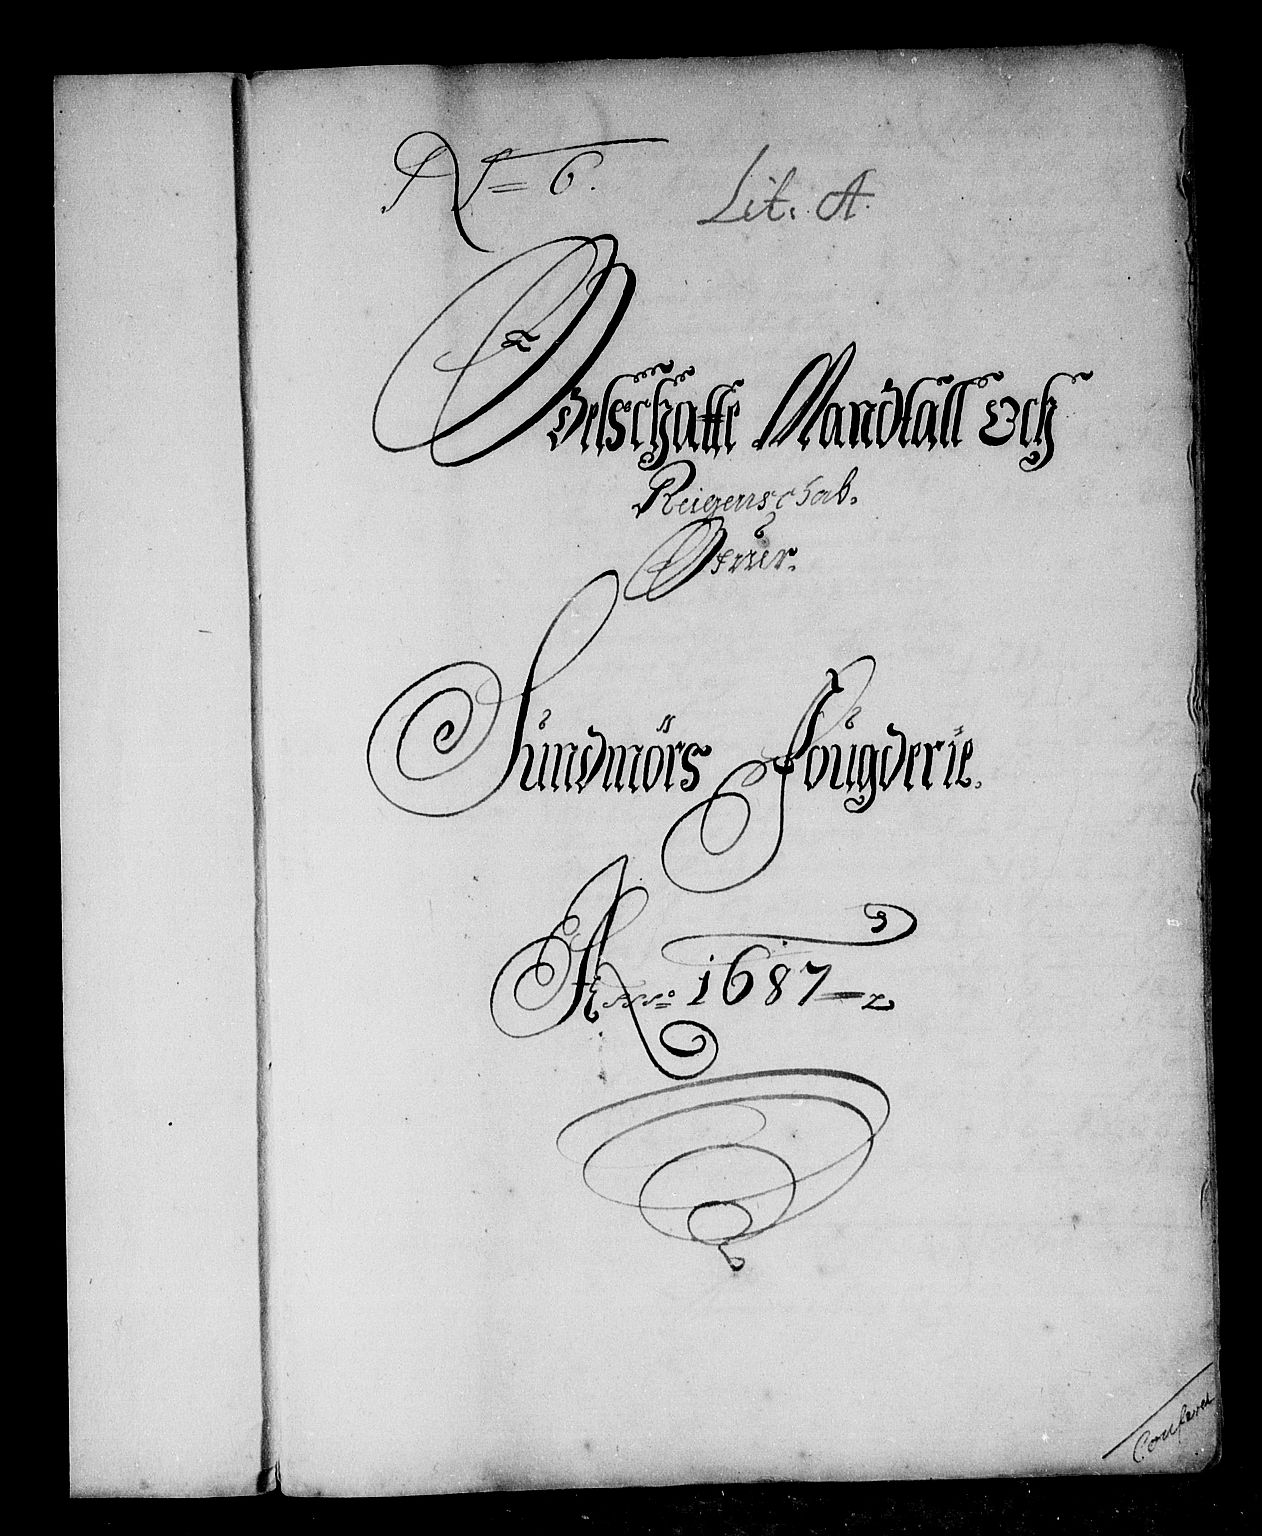 No 6.
Lit. A
Odelschatte Mandtall Och
Reigenschab.
Ofuer.
Sundmörs Fougderie.
Anno 1687